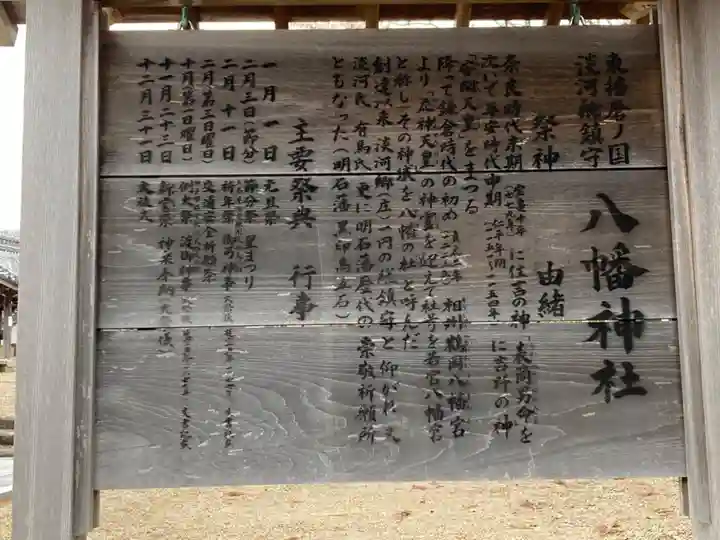 東播磨ノ国
淡河郷鎮守
八幡神社
祭神 由緒
奈良時代末期 に住吉の神 表筒男命を
次いで平安時代中期 仁平年間 に吉野の神
天皇」をまつる
降って鎌倉時代の初め 相州鶴岡八幡宮
より「応神天皇」の神霊を迎えて社号を若宮八幡宮
と称しその神域を八幡の杜と呼んだ
創建以来 淡河郷(庄)一円の総鎮守と仰がれ 又
淡河氏 有馬氏 更に明石藩歴代の崇敬祈願所
ともなった(明石藩 黒印 高五石)
主要祭典 行事
一月一日 元旦祭
二月三日(節分) 節分祭 星まつり
二月十一日 祈年祭 御弓神事
二月(第三日曜日) 交通安全祈願祭
十月(第一日曜日) 例大祭 渡御神事
十一月二十三日 新嘗祭
十二月三十一日 大祓式